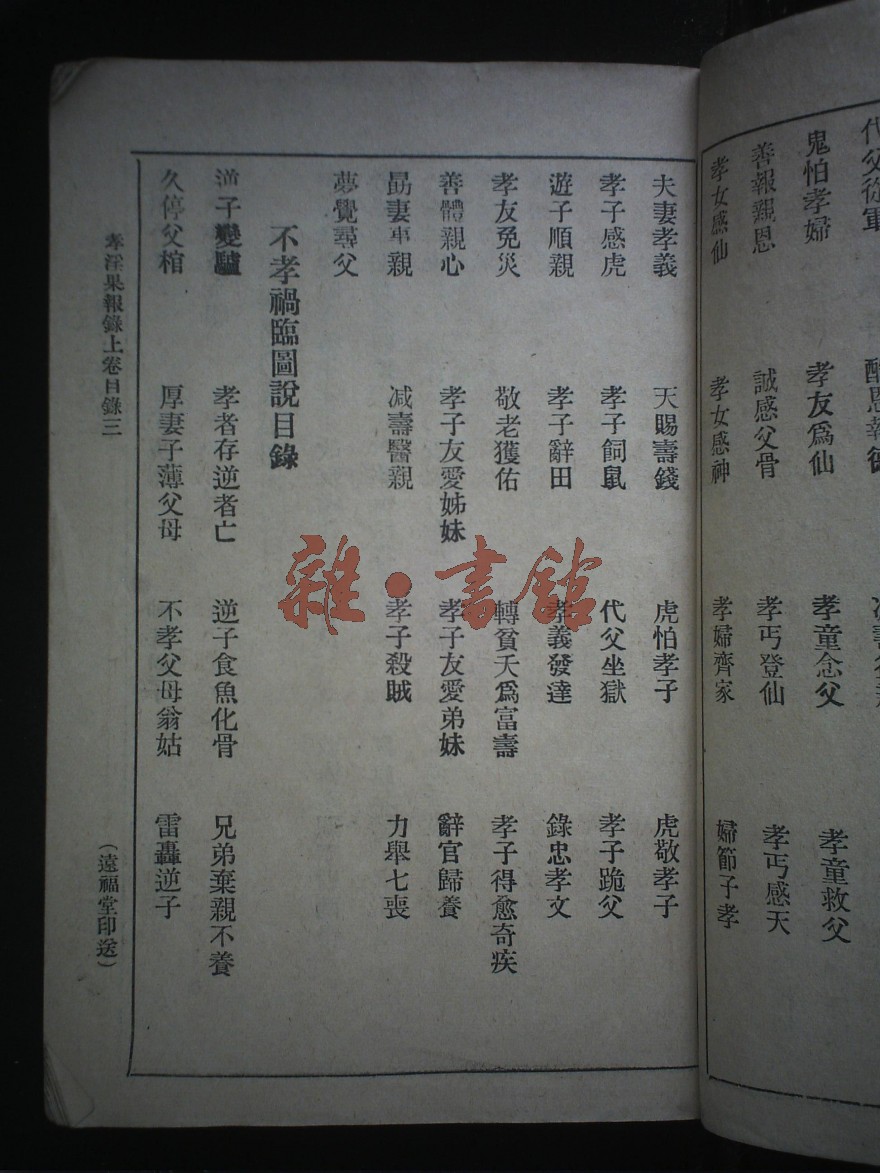 代父從軍
鬼怕孝婦 孝友爲仙 孝童念父 孝童救父
善報親恩 誠感父骨 孝丐登仙 孝丐感天
孝女感仙 孝女感神 孝婦齊家 婦節子孝
夫妻孝義 天賜壽錢 虎怕孝子 虎敬孝子
孝子感虎 孝子飼鼠 代父坐獄 孝子跪父
遊子順親 孝子辭田 孝義發達 錄忠孝文
孝友免災 敬老獲佑 轉貧夭爲富壽 孝子得愈奇疾
善體親心 孝子友愛姊妹 孝子友愛弟妹 辭官歸養
勗妻事親 減壽醫親 孝子殺賊 力舉七喪
夢覺尋父
不孝禍臨圖說目錄
逆子變驢 孝者存逆者亡 逆子食魚化骨 兄弟棄親不養
久停父棺 厚妻子薄父母 不孝父母翁姑 雷轟逆子
孝淫果報錄上卷目錄三 (遠福堂印送)
雜·書館